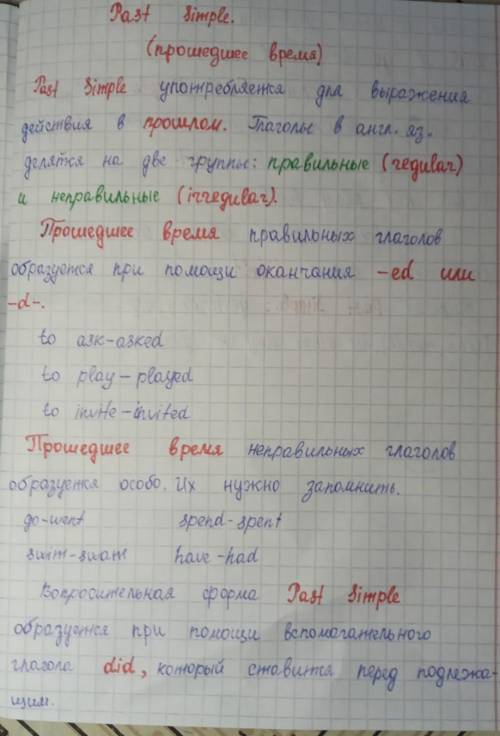 Past Simple.
(прошедшее время)
Past Simple употребляется для выражения
действия в прошлом. Глаголы в англ. яз.
делятся на две группы: правильные (regular)
и неправильные (irregular).
Прошедшее время правильных глаголов
образуется при помощи окончания -ed или
-d-.
to ask-asked
to play-played
to invite-invited
Прошедшее время неправильных глаголов
образуется особо. Их нужно запомнить.
go-went spend-spent
swim-swam have-had
Вопросительная форма Past Simple
образуется при помощи вспомагательного
глагола did, который ставится перед подлежа-
щим.